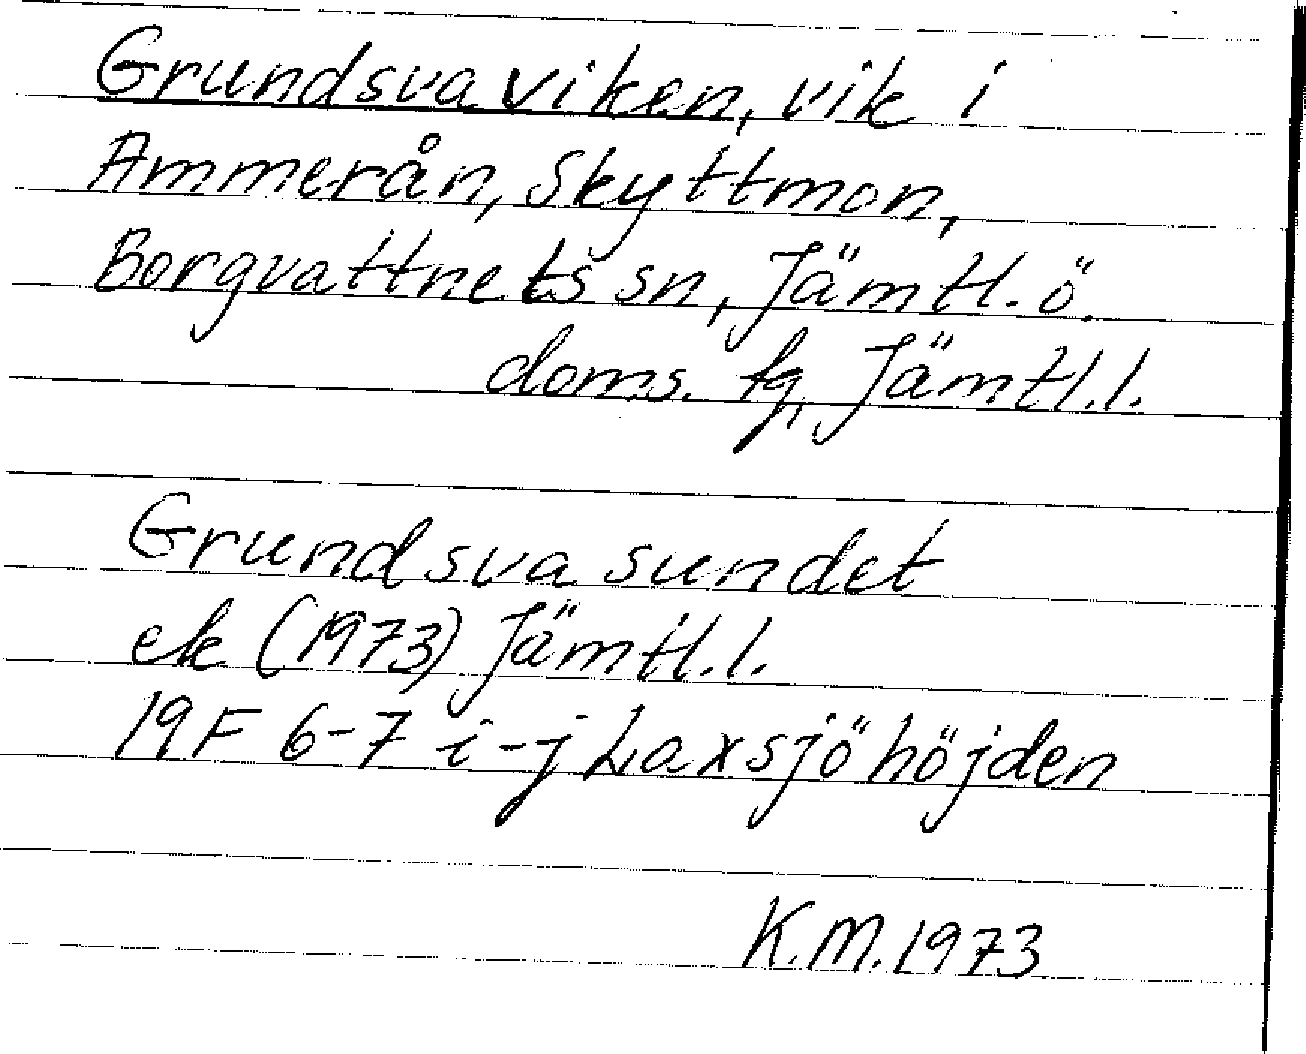 Grundsvaviken, vik i
Ammerån, Skyttmon,
Borgvattnets sn, Jämtl. ö.
doms. fq, Jämtl. l.
Grundsvasundet
ek (1973) Jämtl. l.
19F 6-7 i-j Laxsjöhöjden
K.M. 1973